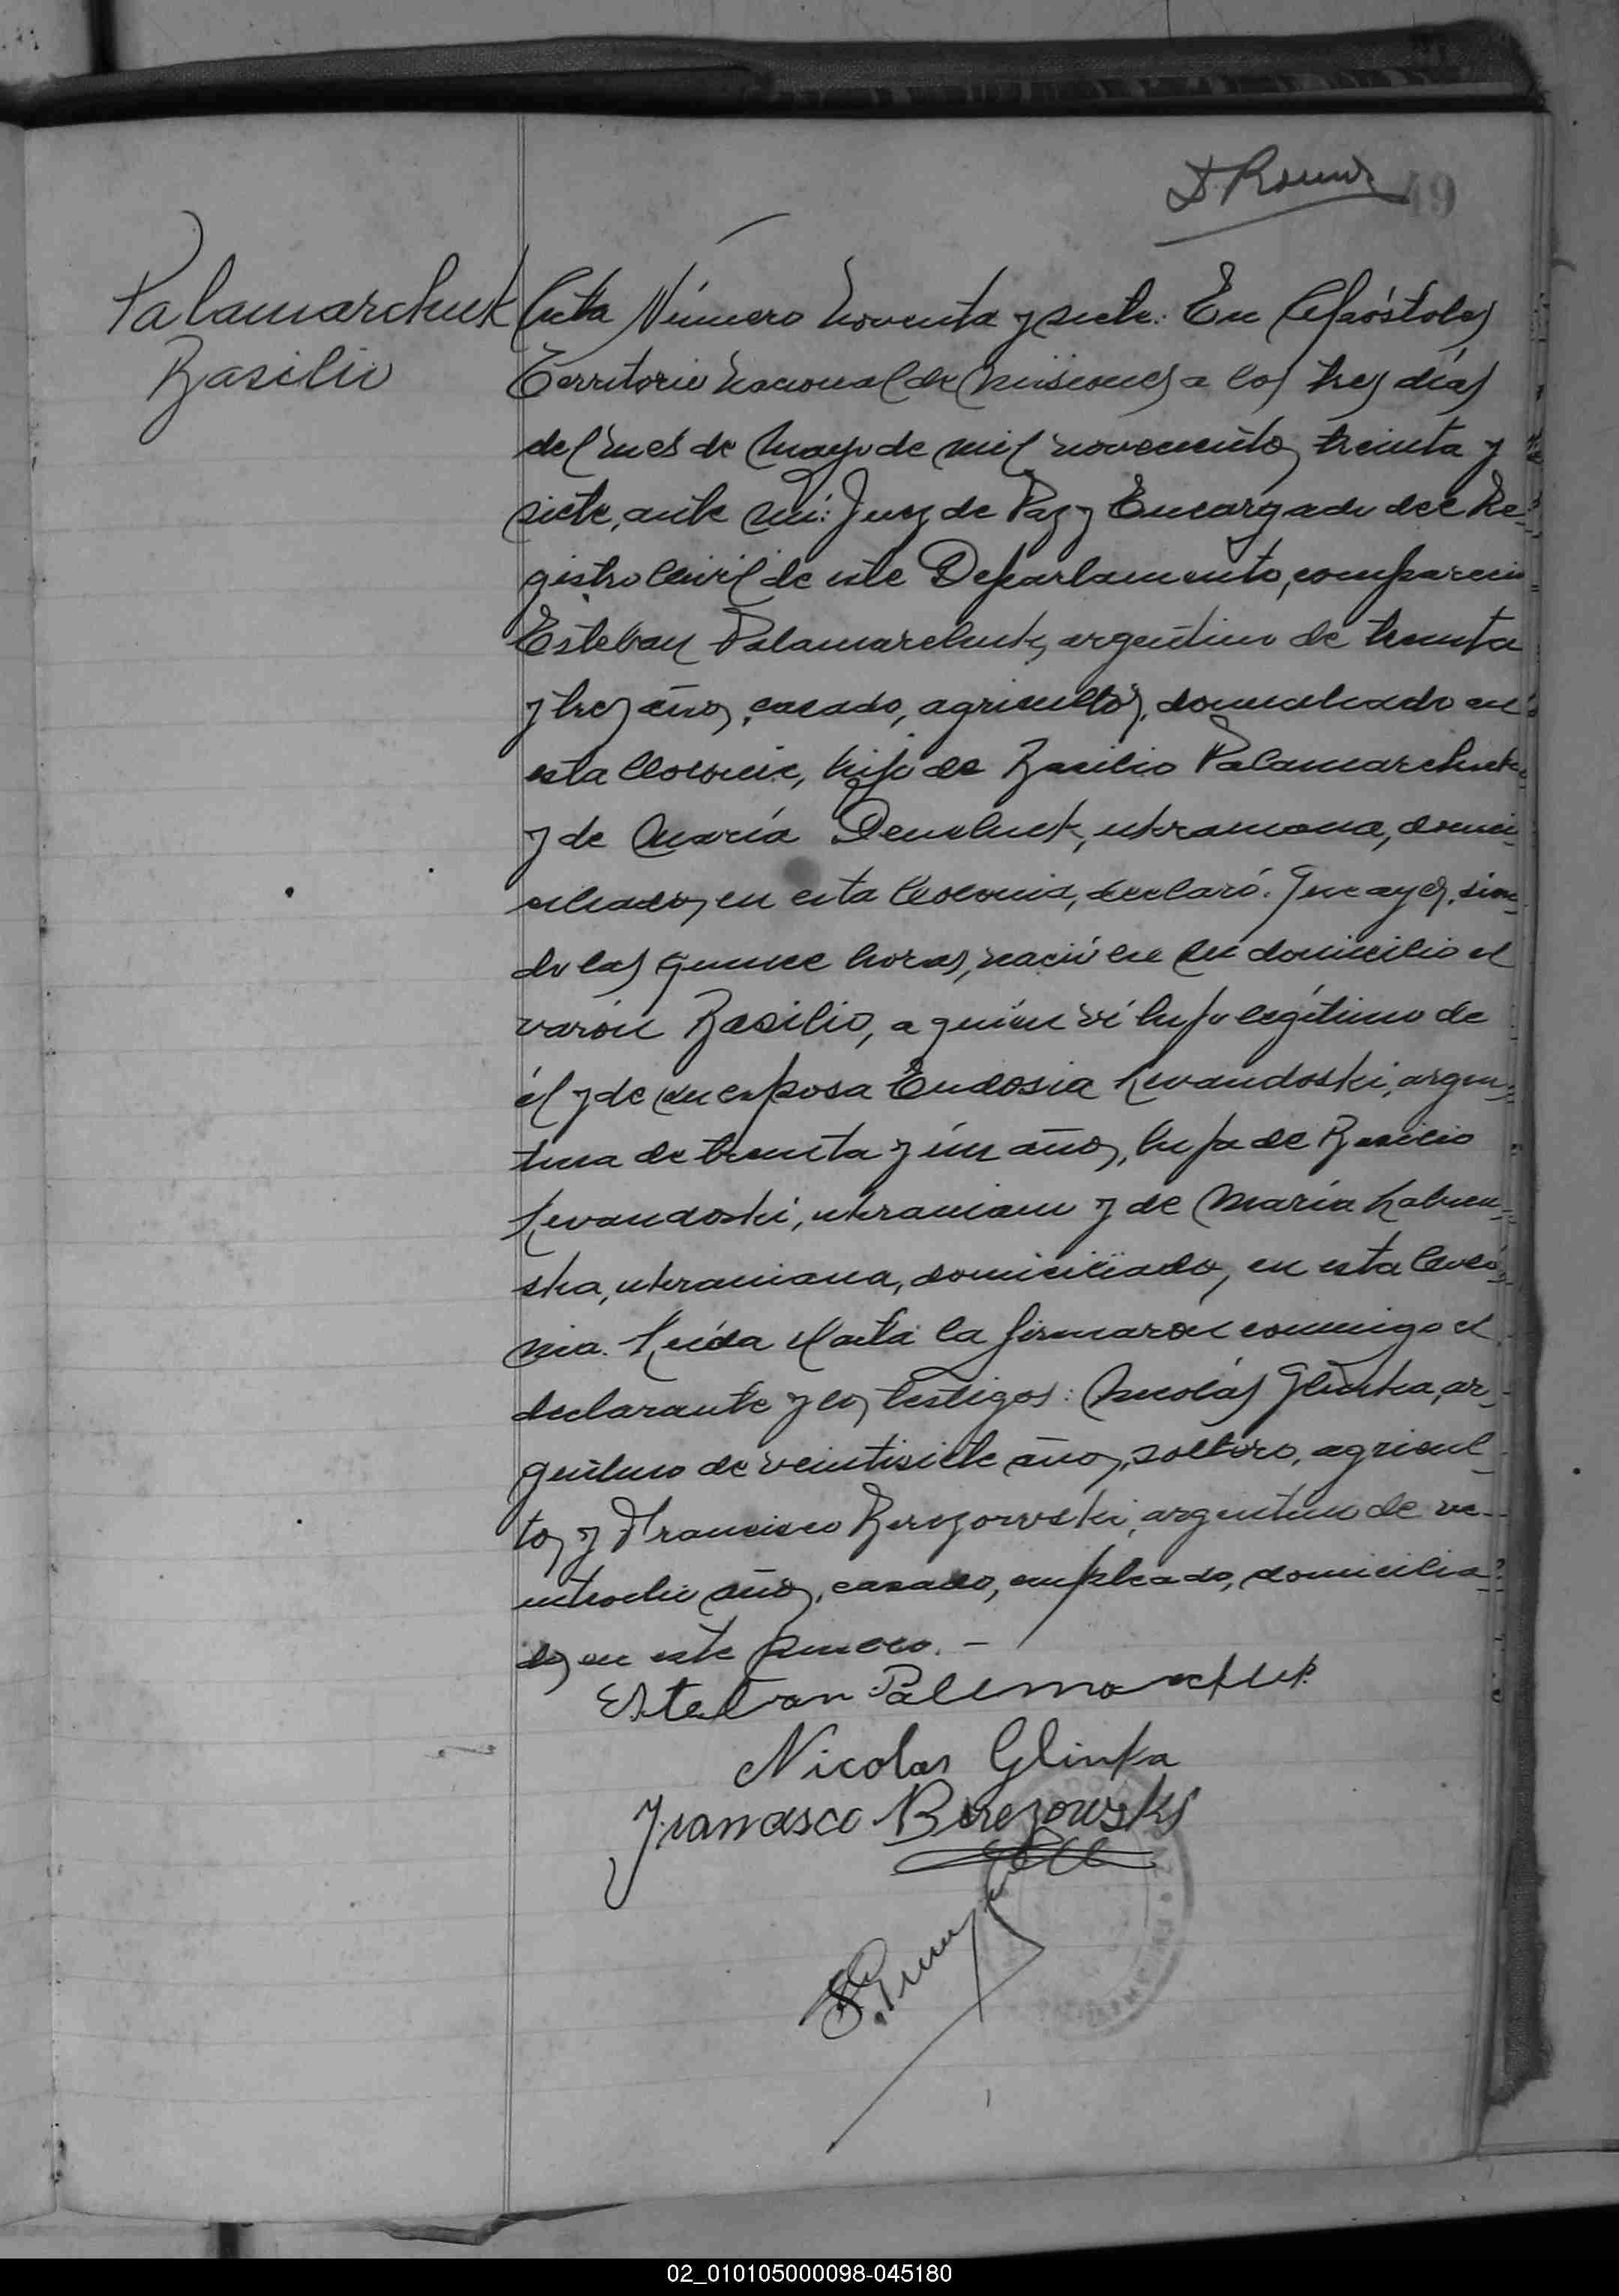 49
Palamarchuk
Basilio
Acta Número noventa y siete: En Apóstoles
Territorio Nacional de Misiones a los tres días
del mes de Mayo de mil novecientos treinta y
siete, ante mi: Juez de Paz y Encargado del Re-
gistro Civil de este Departamento, compareció
Esteban Palamarchuk, argentino de treinta
y tres años, casado, agricultor, domiciliado en
esta Colonia, hijo de Basilio Palamarchuk
y de María ucraniana, domi-
ciliados en esta Colonia, declaró: Que ayer, sien-
do las quince horas, nació en su domicilio el
varón Basilio, a quién ví hijo legítimo de
él y de su esposa Eudosia Lewandoski, argen-
tina de treinta y un años, hija de Basilio
Lewandoski, ukraniano y de María
ska, ukraniana, domiciliados en esta Colo-
nia. Leída el acta la firmaron conmigo el
declarante y los testigos: Nicolás Glinka, ar-
gentino de veintisiete años, soltero, agricul-
tor y Francisco Berezowski, argentino de ve-
intiocho años, casado, empleado, domicilia-
dos en este pueblo. -
Estevan Palemarchuk
Nicolas Glinka
Francisco Berezowski
02_010105000098-045180